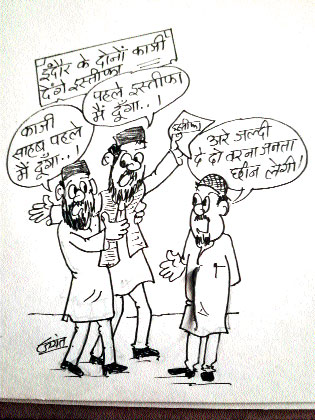 इंदौर के दोनों काजी
देंगे इस्तीफा
पहले इस्तीफा
मैं दूँगा..!
काजी
साहब पहले
मैं दूँगा..!
इस्तीफा
अरे जल्दी
दे दो वरना जनता
छीन लेगी!